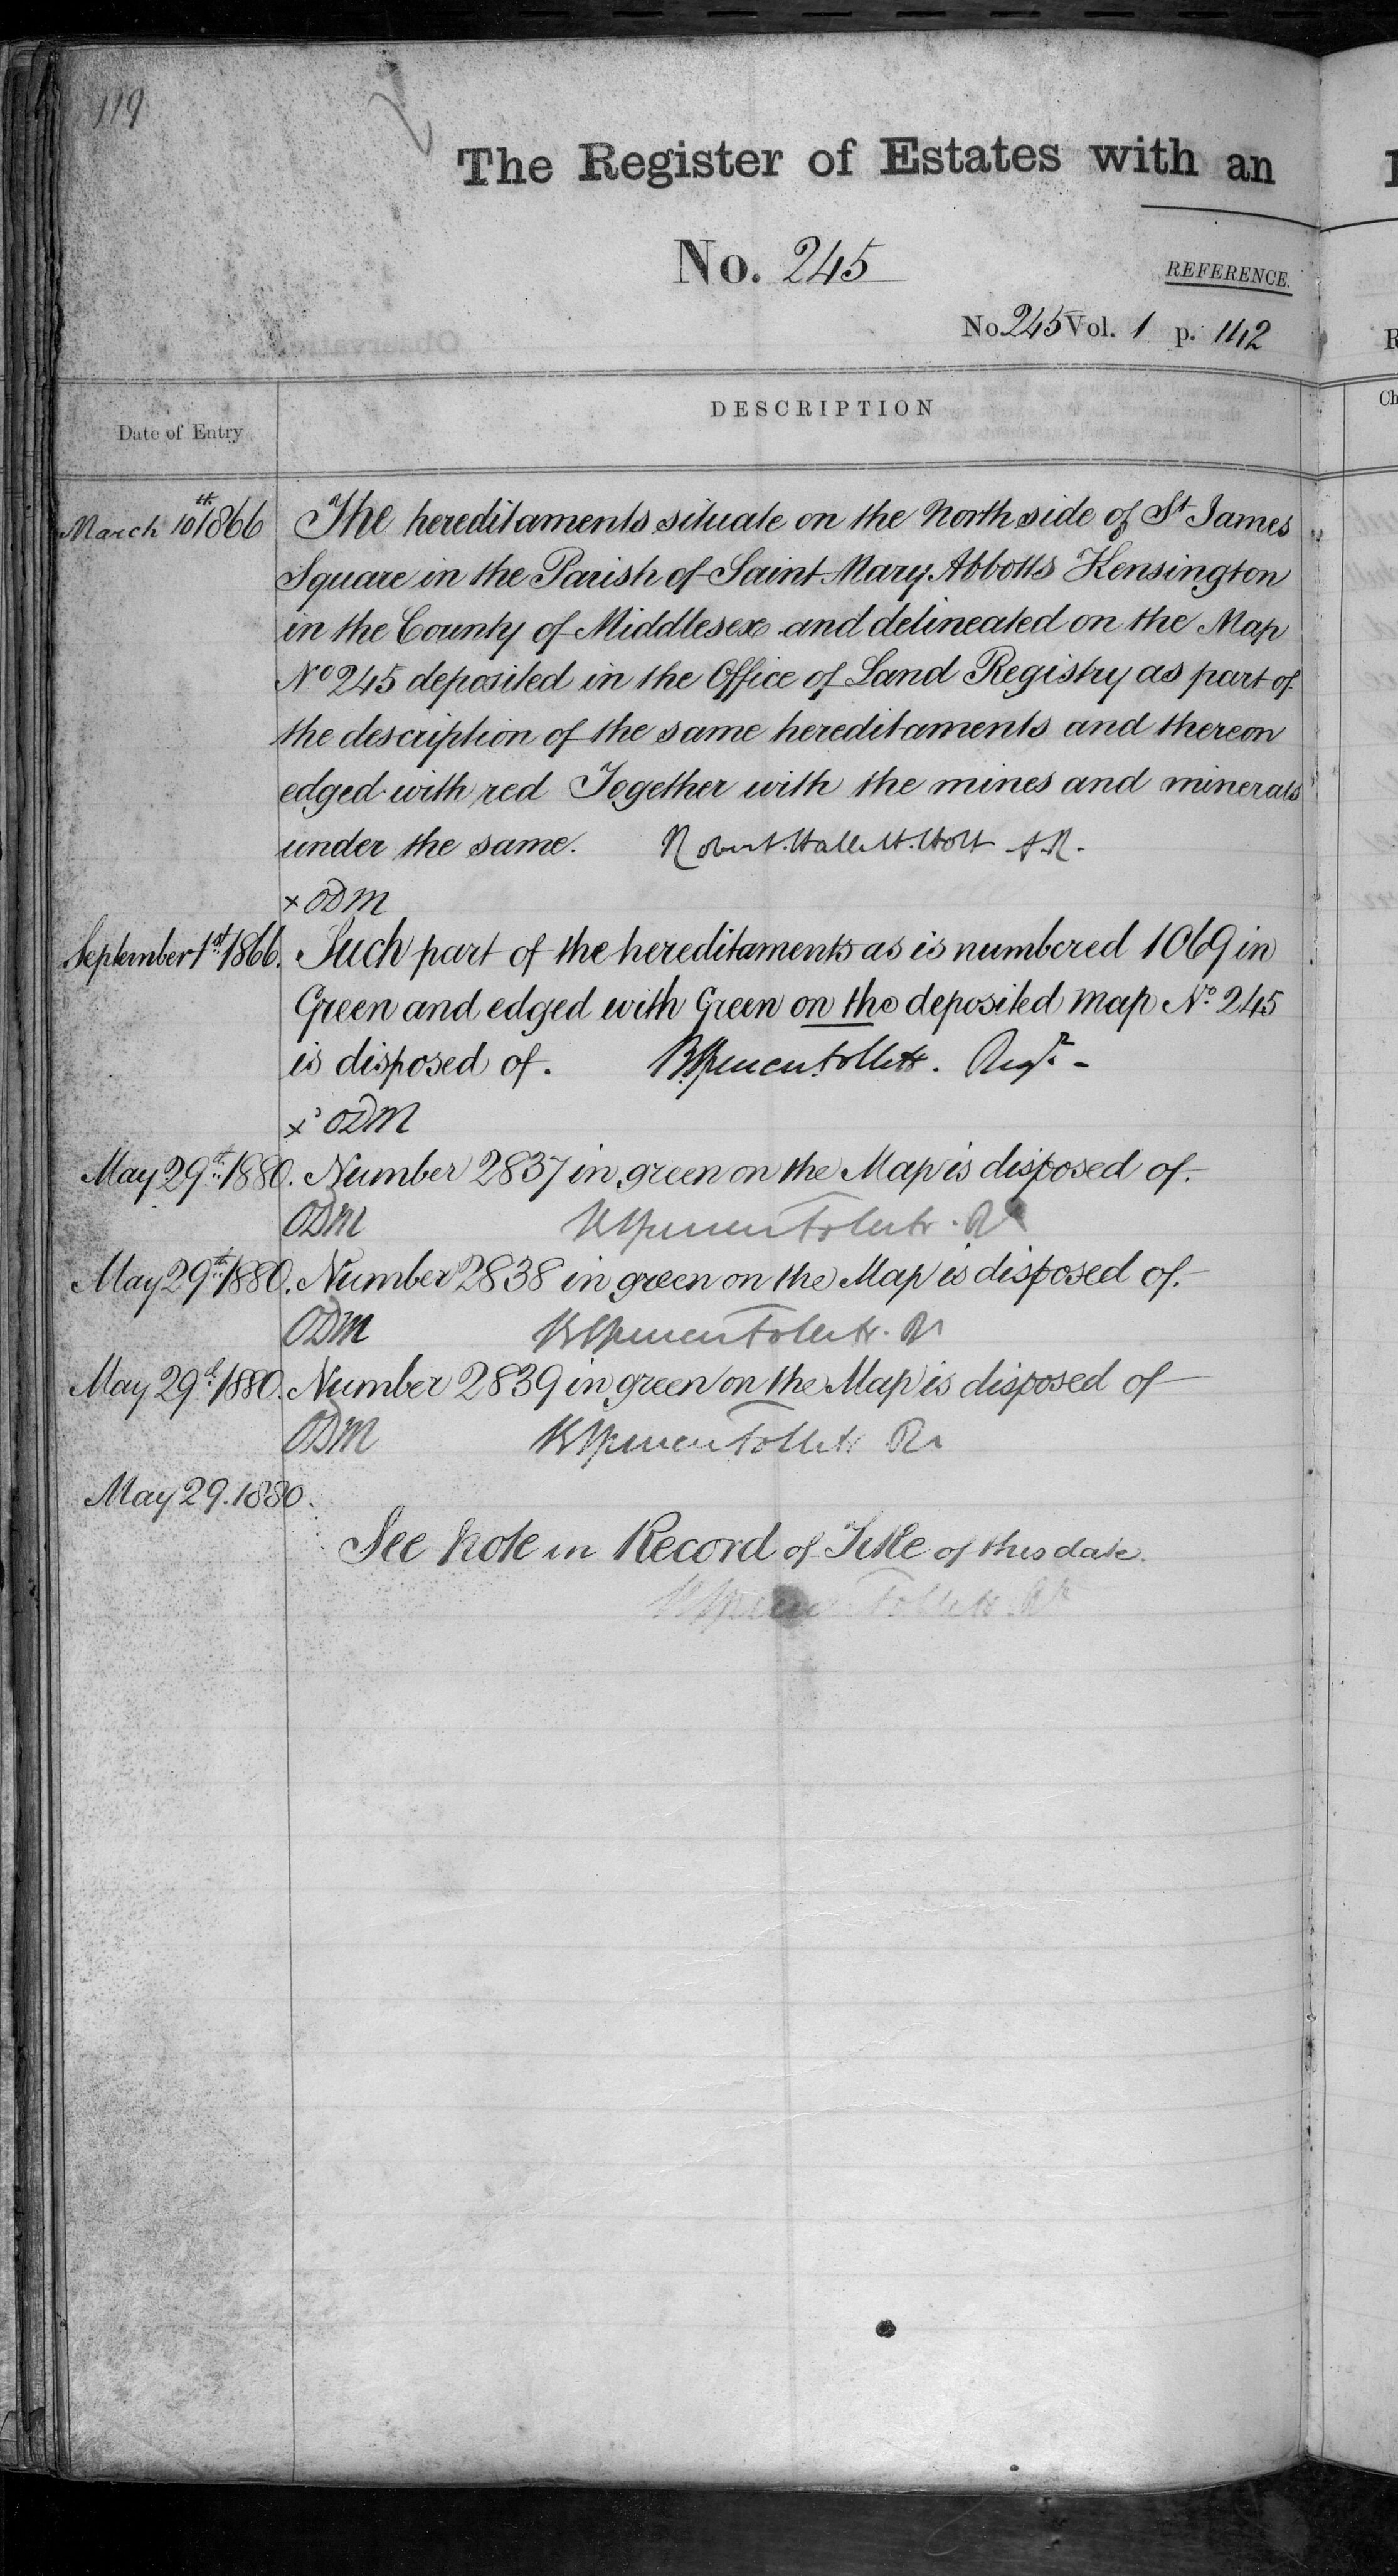 119
The Register of Estates with an
No. 245
REFERENCE.
No 245 Vol. 1 p. 1112
DESCRIPTION
Date of Entry
March 10th 1866 The hereditaments situate on the North side of St James
Square in the Parish of Saint Mary Abbotts Kensington
in the County of Middlesex and delineated on the Map
No 245 deposited in the Office of Land Registry as part of
the description of the same hereditaments and thereon
edged with red Together with the mines and minerals
under the same. Robert Hallett Holt A.R.
x ODM
September 1st 1866. Such part of the hereditaments as is numbered 1069 in
Green and edged with Green on the deposited map No. 245
is disposed of. B Spencer Follett. Regr.
x ODM
May 29th 1880. Number 2837 in green on the Map is disposed of.
ODM B Spencer Follett. Rr
May 29th 1880. Number 2838 in green on the Map is disposed of.
ODM B Spencer Follett. Rr
May 29th 1880. Number 2839 in green on the Map is disposed of
ODM B Spencer Follett Rr
May 29. 1880.
See Note in Record of Title of this date.
B Spencer Follett. Rr
Ch